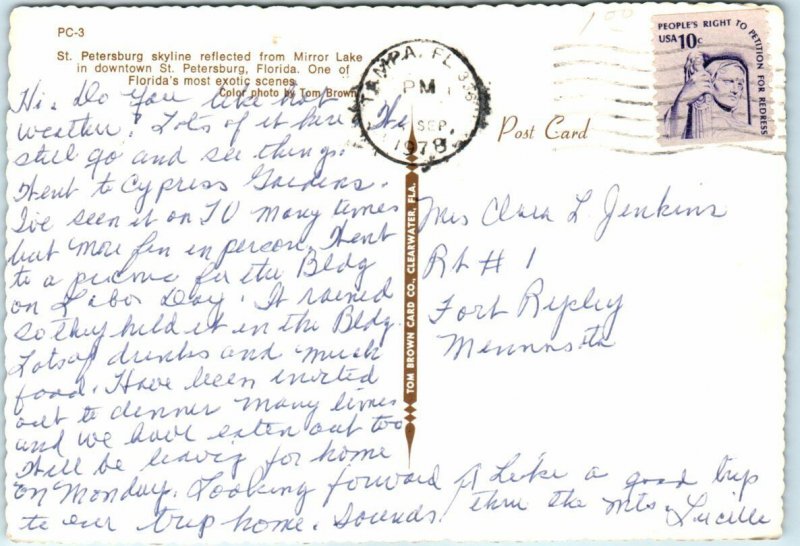 PC-3
St. Petersburg skyline reflected from Mirror Lake
in downtown St. Petersburg, Florida. One of
Florida's most exotic scenes.
Color photo by Tom Brown
Hi. Do you like hot
weather. Lots of it here. We
still go and see things.
Went to Cypress Gardens.
I've seen it on TV many times
but more fun in person. Went
to a picnic for the Bldg
on Labor Day. It rained
so they held it in the Bldg.
Lots of drinks and much
food. Have been invited
out to dinner many times
and we have eaten out too
Will be leaving for home
on Monday. Looking forward
to our trip home. Sounds
like a good trip
thru the Mts.
Lucille
TOM BROWN CARD CO., CLEARWATER, FLA.
TAMPA, FL
PM
SEP
1978
Post Card
PEOPLE'S RIGHT TO PETITION FOR REDRESS
USA 10c
Mrs Clara L. Jenkins
Rt # 1
Fort Ripley
Minnesota